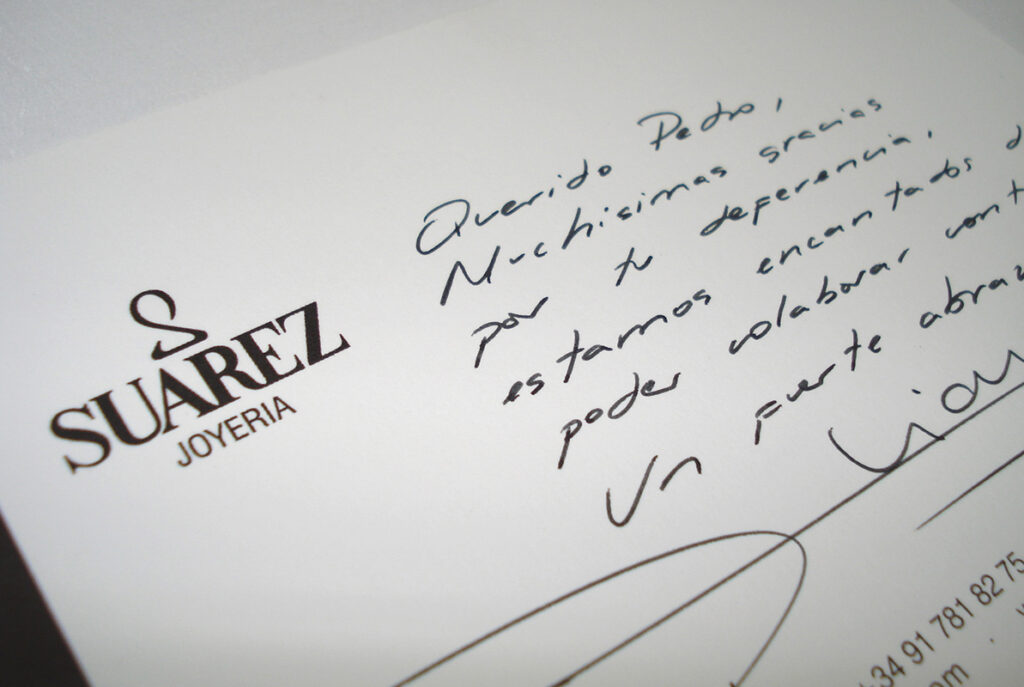 SUAREZ
JOYERIA
Querido Pedro,
Muchisimas gracias
por tu deferencia,
estamos encantados d
poder colaborar cont
Un fuerte abraz
34 91 781 82 75
om